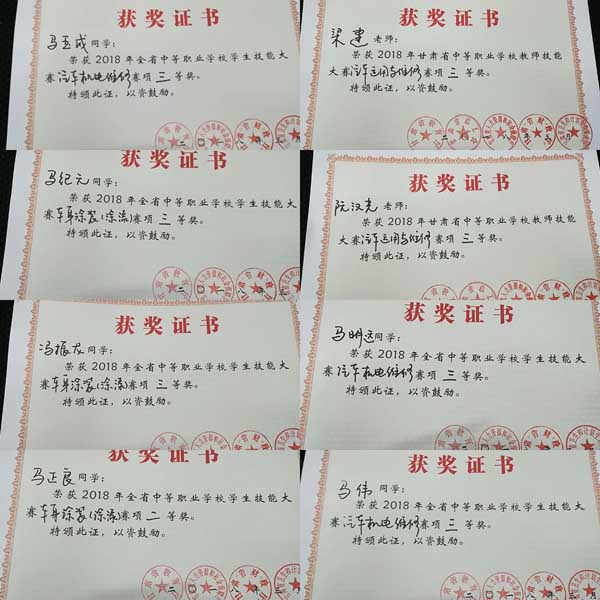 获奖证书
马玉成同学：
荣获2018年全省中等职业学校学生技能大
赛汽车机电维修赛项三等奖。
特颁此证，以资鼓励。
获奖证书
梁建老师：
荣获2018年甘肃省中等职业学校教师技能
大赛汽车运用与维修赛项三等奖。
特颁此证，以资鼓励。
获奖证书
马纪元同学：
荣获2018年全省中等职业学校学生技能大
赛车身涂装(涂漆)赛项三等奖。
特颁此证，以资鼓励。
获奖证书
阮汉光老师：
荣获2018年甘肃省中等职业学校教师技能
大赛汽车运用与维修赛项三等奖。
特颁此证，以资鼓励。
获奖证书
冯振友同学：
荣获2018年全省中等职业学校学生技能大
赛车身涂装(涂漆)赛项三等奖。
特颁此证，以资鼓励。
获奖证书
马明远同学：
荣获2018年全省中等职业学校学生技能大
赛汽车机电维修赛项三等奖。
特颁此证，以资鼓励。
获奖证书
马正良同学：
荣获2018年全省中等职业学校学生技能大
赛车身涂装(涂漆)赛项二等奖。
特颁此证，以资鼓励。
获奖证书
马伟同学：
荣获2018年全省中等职业学校学生技能大
赛汽车机电维修赛项三等奖。
特颁此证，以资鼓励。